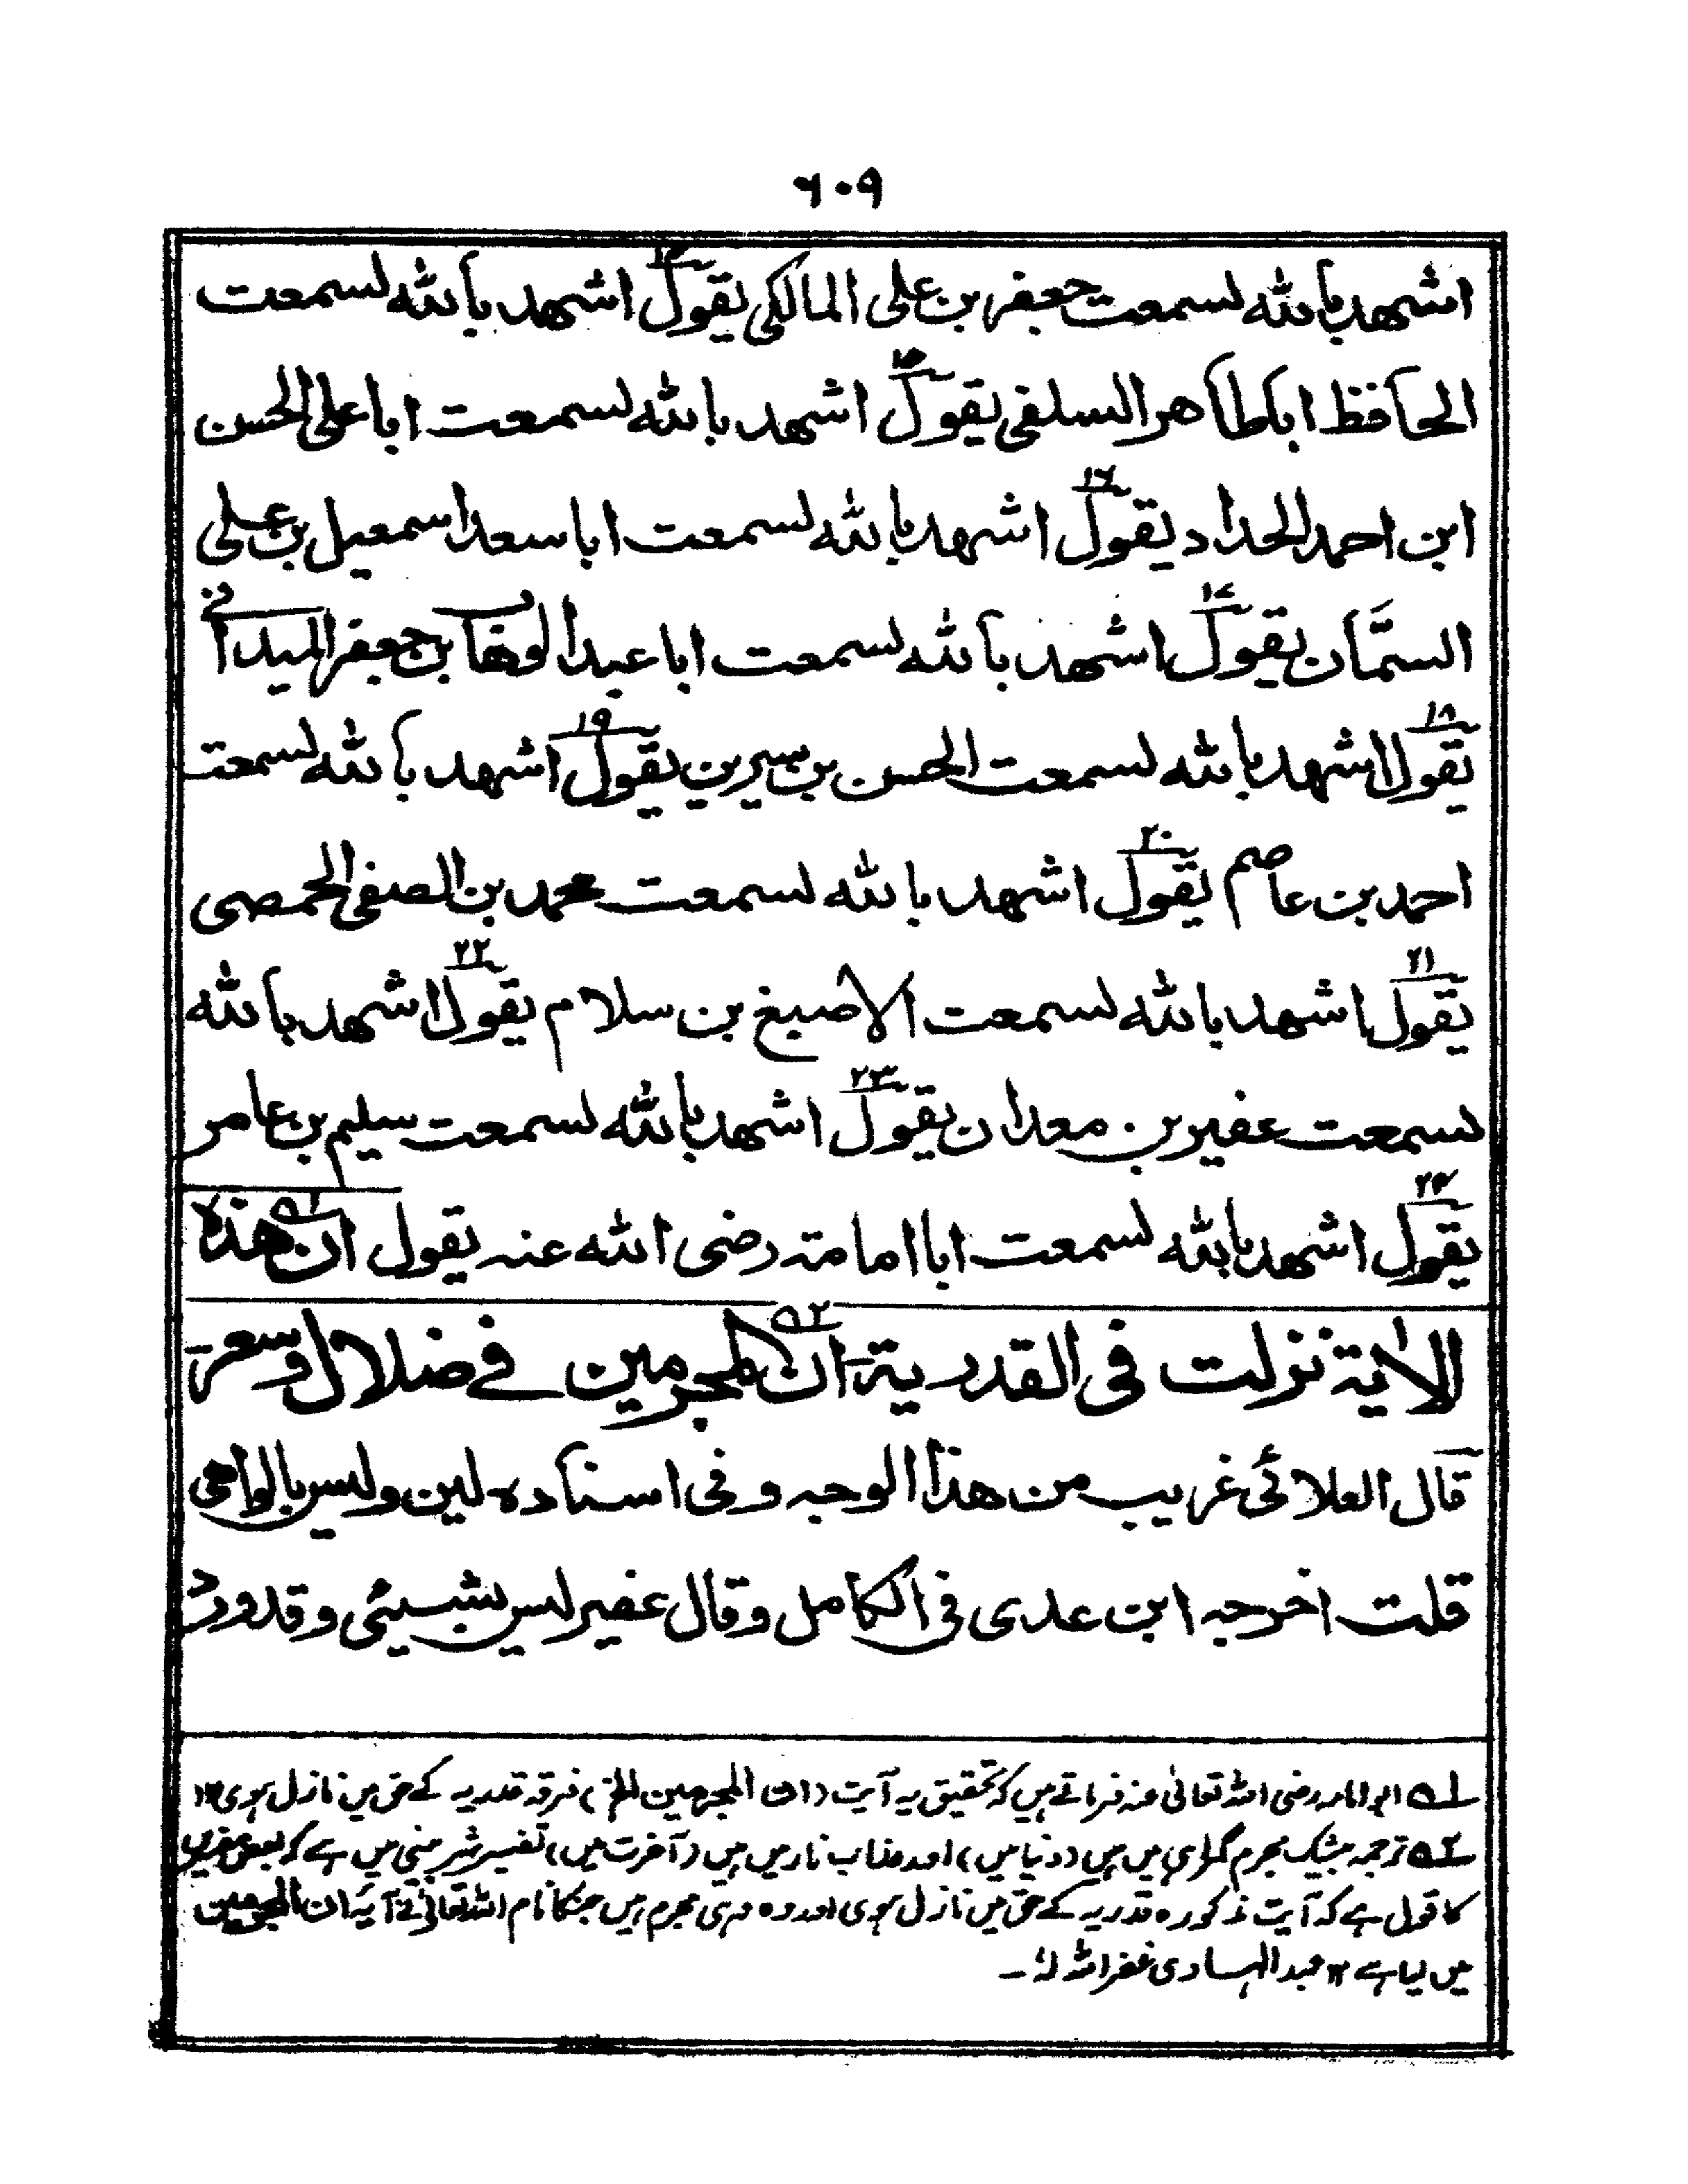 ٦٠٩
اشهد بالله لسمعت جعفر بن علی المالکی یقول ۱۴ اشهد بالله لسمعت
الحافظ اباطاهر السلفی یقول ۱۵ اشهد بالله لسمعت اباعلی الحسن
ابن احمد الحداد یقول ۱۶ اشهد بالله لسمعت اباسعد اسمعیل بن علی
السمَّان یقول ۱۷ اشهد بالله لسمعت اباعبدالوهاب بن جعفر المیدانی
یقول ۱۸ اشهد بالله لسمعت الحسن بن سیرین یقول ۱۹ اشهد بالله لسمعت
احمد بن عاصم یقول ۲۰ اشهد بالله لسمعت محمد بن الصفی الحمصی
یقول ۲۱ اشهد بالله لسمعت الاصبغ بن سلام یقول ۲۲ اشهد بالله
لسمعت عفیر بن معدان یقول ۲۳ اشهد بالله لسمعت سلیم بن عامر
یقول ۲۴ اشهد بالله لسمعت اباامامة رضی الله عنه یقول ان ۱ھ هذه
الاٰیة نزلت فی القدریة ۲ھ ان المجرمین فی ضلال وسعر
قال العلائی غریب من هذا الوجه وفی اسناده لین ولیس بالواهی
قلت اخرجه ابن عدی فی الکامل وقال عفیر لیس بشیئی وقدورد
۱ھ ابوامامہ رضی اللہ تعالیٰ عنہ فرماتے ہیں کہ تحقیق یہ آیت (ان المجرمین الخ) فرقہ قدریہ کے حق میں نازل ہوی ۱۲
۲ھ ترجمہ بیشک مجرم گمراہی میں ہیں (دنیا میں) اور عذاب نار میں ہیں (آخرت میں) تفسیر شربینی میں ہے کہ بعض مفسرین
کا قول ہے کہ آیت مذکورہ قدریہ کے حق میں نازل ہوی اور وہ وہی مجرم ہیں جنکا نام اللہ تعالیٰ نے آیۂ ان المجرمین
میں لیا ہے ۱۲ عبد الہادی غفر اللہ لہٗ ۔